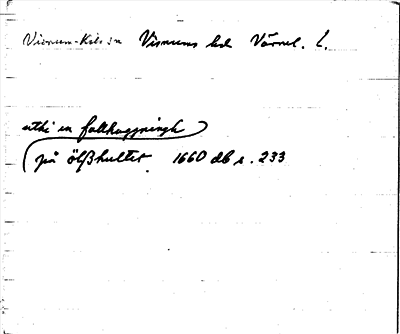 Visnum-Kils sn Visnums hd Värml. L.
uthi en fallhuggningh
på ölßhultet 1660 db s. 233